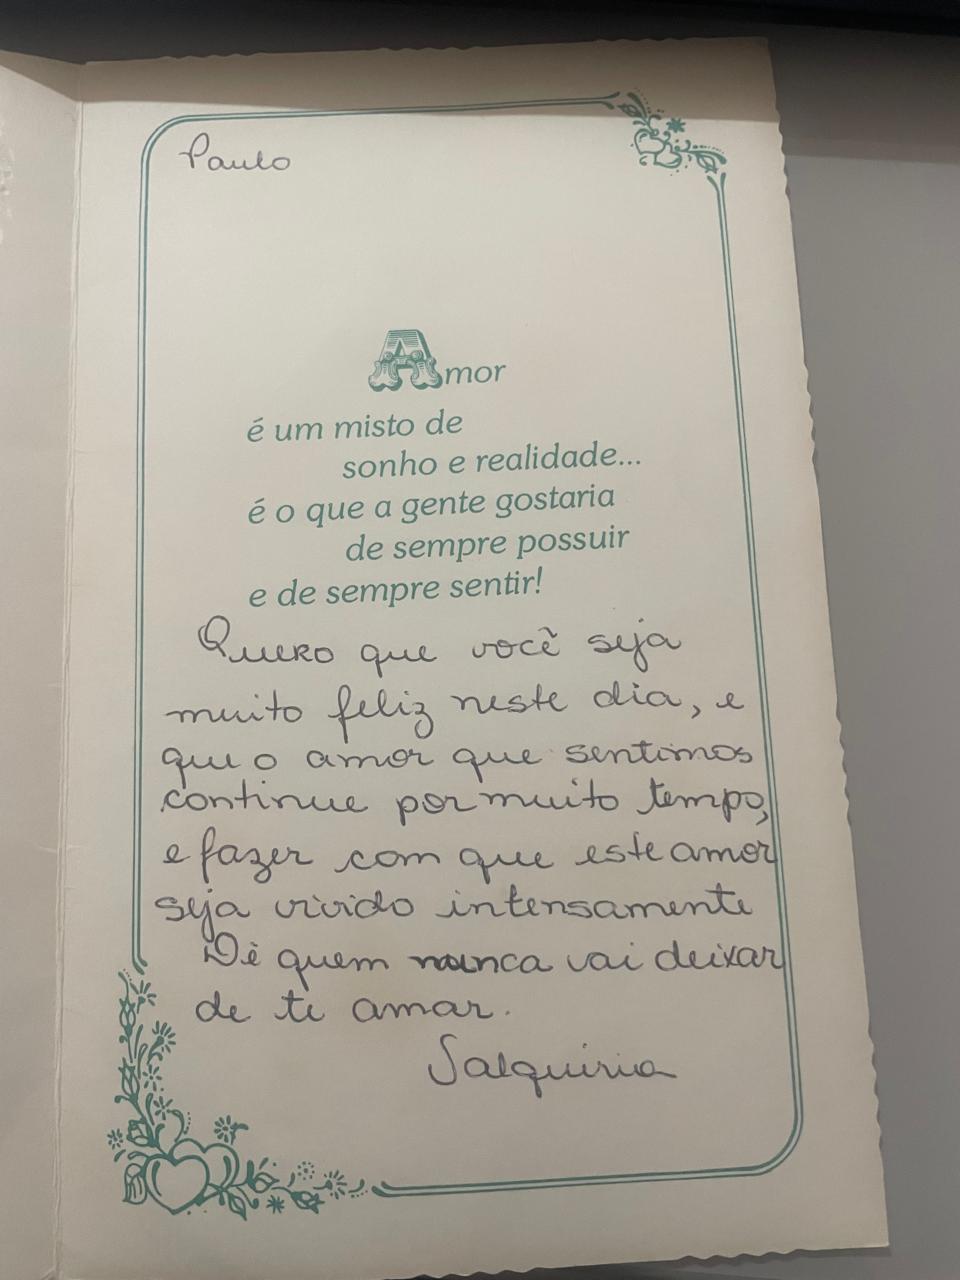 Paulo
Amor
é um misto de
sonho e realidade...
é o que a gente gostaria
de sempre possuir
e de sempre sentir!
Quero que você seja
muito feliz neste dia, e
que o amor que sentimos
continue por muito tempo,
e fazer com que este amor
seja vivido intensamente
De quem nunca vai deixar
de te amar.
Salquiria